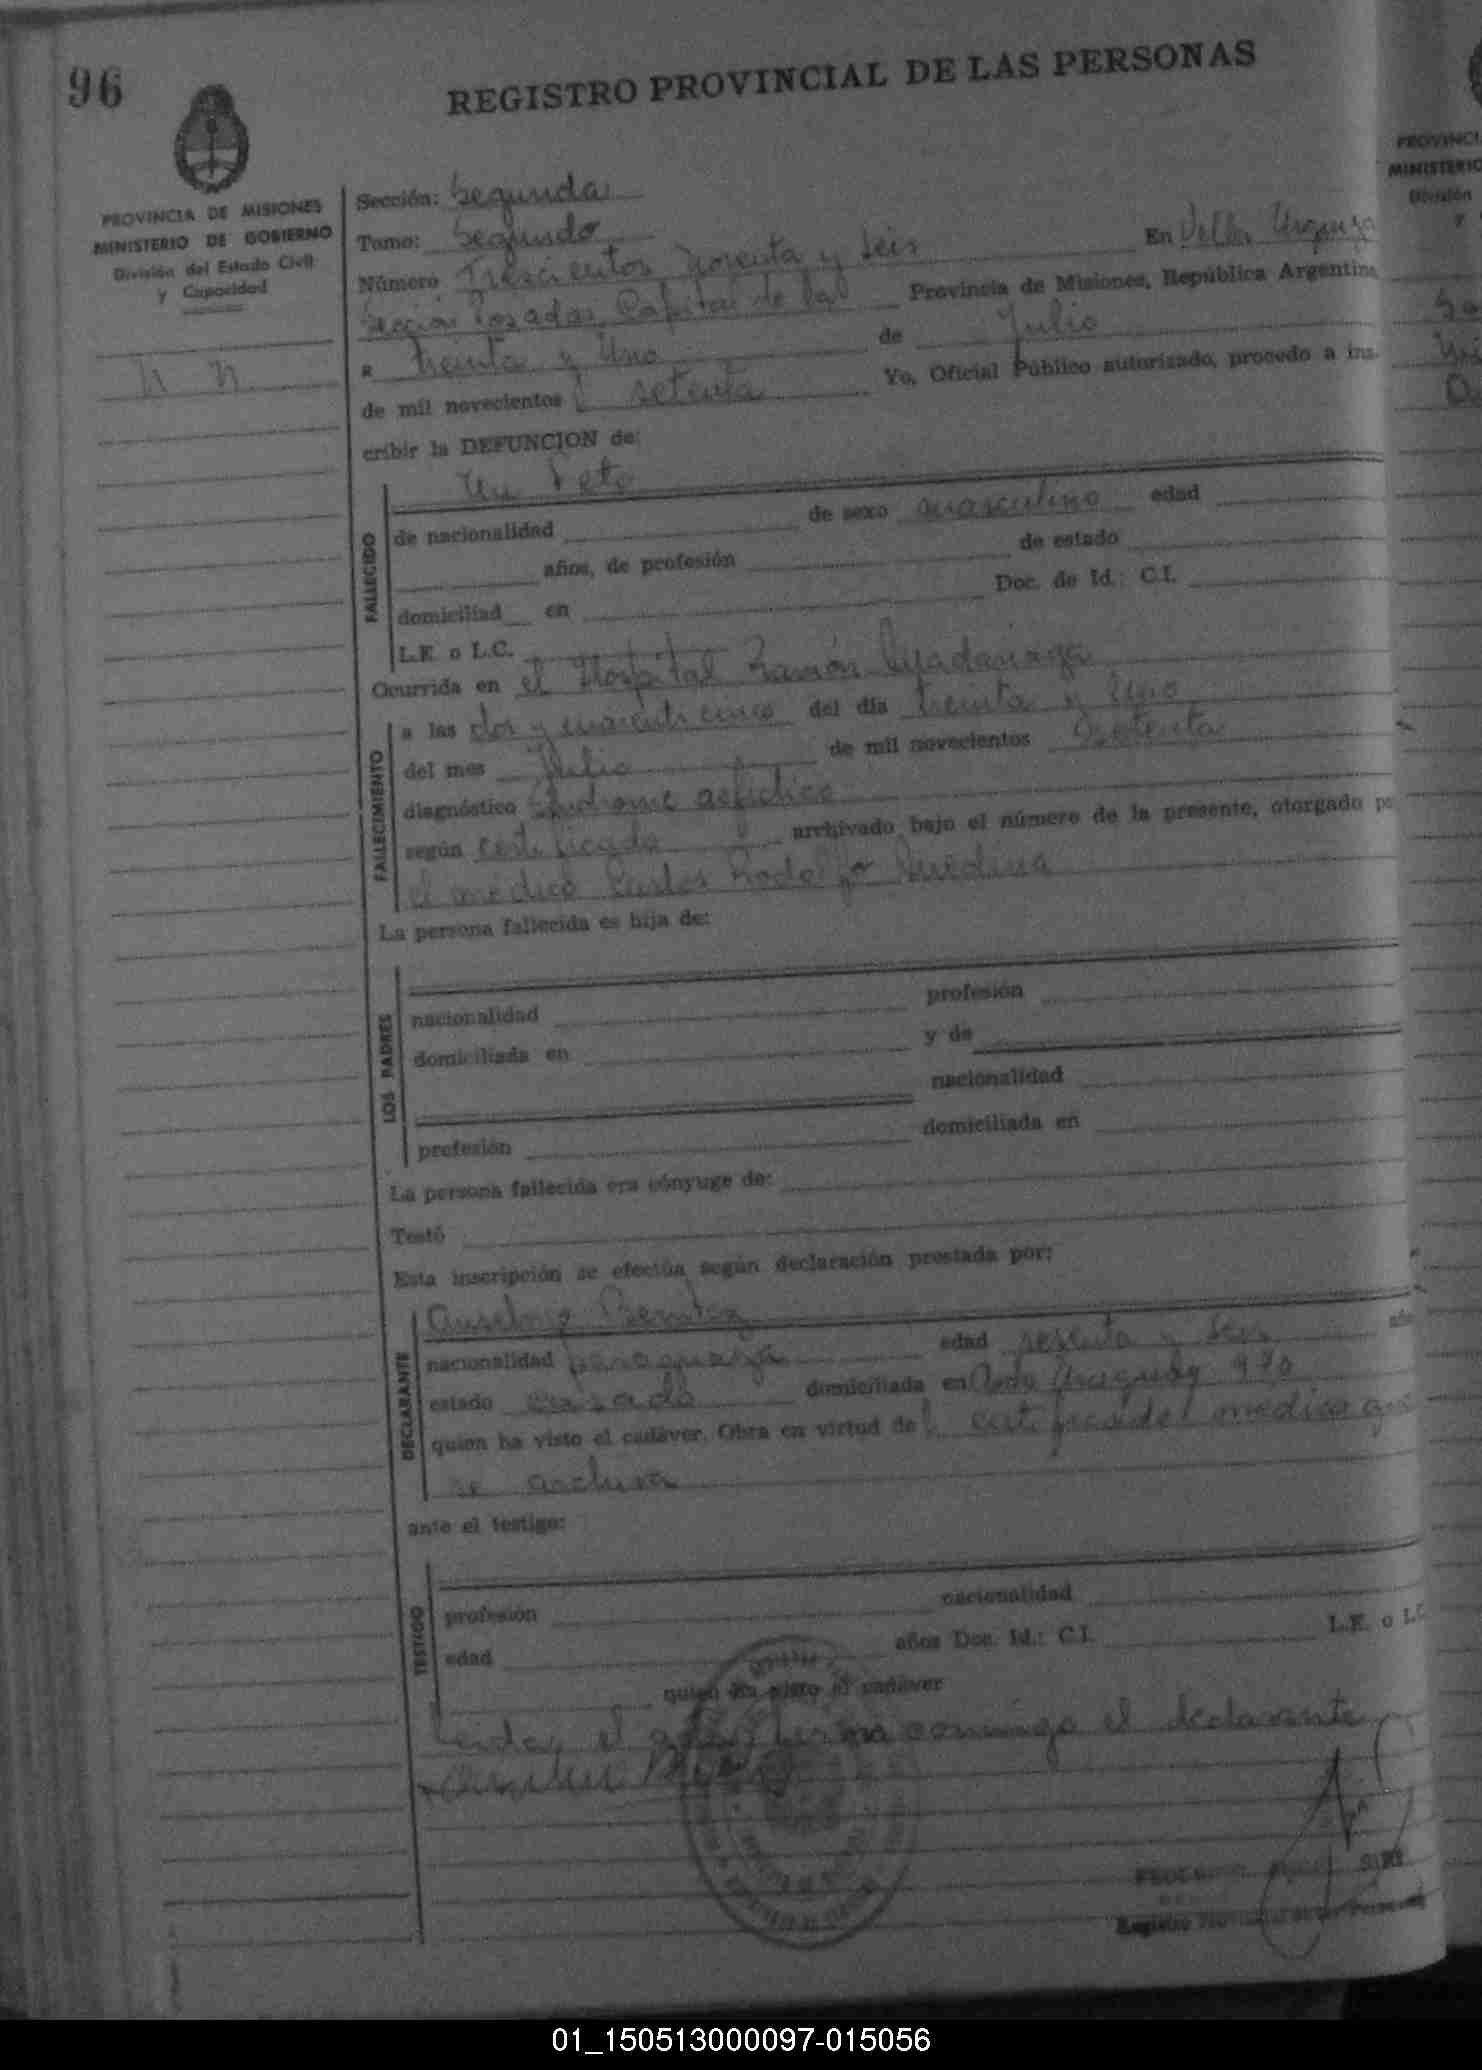 96
REGISTRO PROVINCIAL DE LAS PERSONAS
PROVINCIA DE MISIONES
MINISTERIO DE GOBIERNO
División del Estado Civil
y Capacidad
n n
Sección: Segunda
Tomo: Segundo
Número Trescientos Noventa y Seis En Villa Urquiza
Sección Posadas Capital de la Provincia de Misiones, República Argentina
a treinta y Uno de Julio
de mil novecientos setenta Yo, Oficial Público autorizado, procedo a ins-
cribir la DEFUNCION de:
Un Feto
FALLECIDO
de nacionalidad de sexo masculino edad
años, de profesión de estado
domiciliad en Doc. de Id.: C.I.
L.E. o L.C.
Ocurrida en el Hospital Ramón Madariaga
FALLECIMIENTO
a las dos y cuarenta cinco del día treinta y Uno
del mes Julio de mil novecientos Setenta
diagnóstico Síndrome asfictico
según certificado archivado bajo el número de la presente, otorgado po
el médico Carlos Rodolfo Medina
La persona fallecida es hija de:
LOS PADRES
nacionalidad profesión
domiciliada en y de
nacionalidad
profesión domiciliada en
La persona fallecida era cónyuge de:
Testó
Esta inscripción se efectúa según declaración prestada por:
DECLARANTE
Anselmo Benitez
nacionalidad paraguaya edad sesenta y Seis año
estado casado domiciliada en Avda Uruguay 970
quien ha visto el cadáver. Obra en virtud de certificado del médico que
se archiva
ante el testigo:
TESTIGO
profesión nacionalidad
edad años Doc. Id.: C.I. L.E. o L.C
quien ha visto el cadáver
Leida el acta firma conmigo el declarante
Registro Provincial de las Personas
PROVINCI
MINISTERIO
División
y
01_150513000097-015056